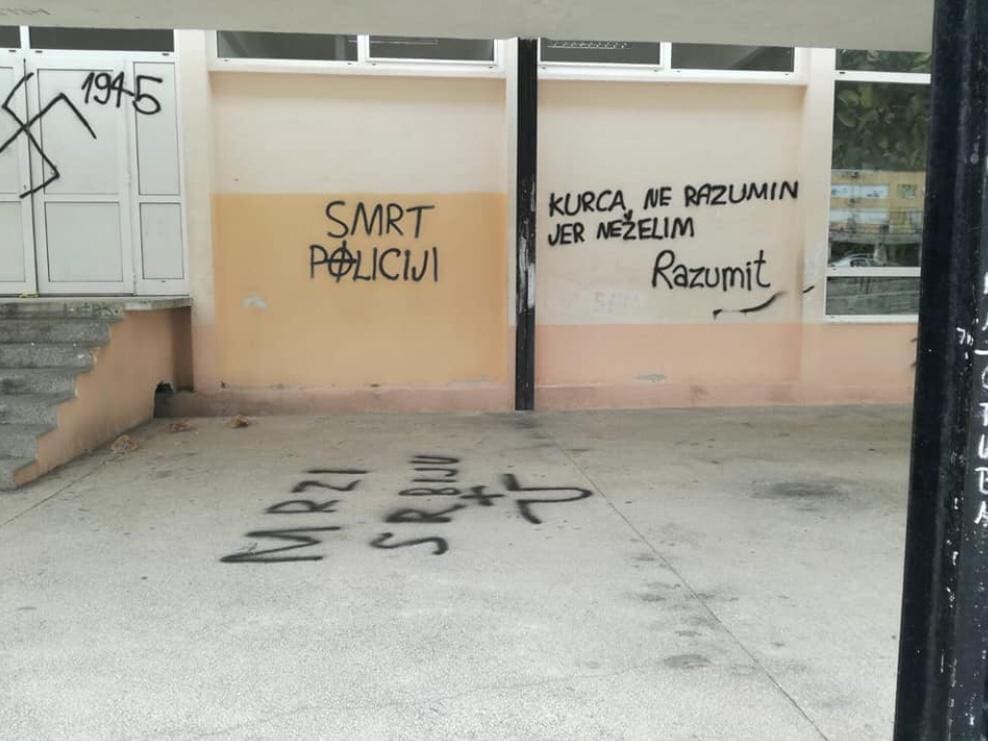 1945
SMRT
POLICIJI
KURCA NE RAZUMIN
JER NEŽELIM
Razumit
MRZI
SRBIJU
+U